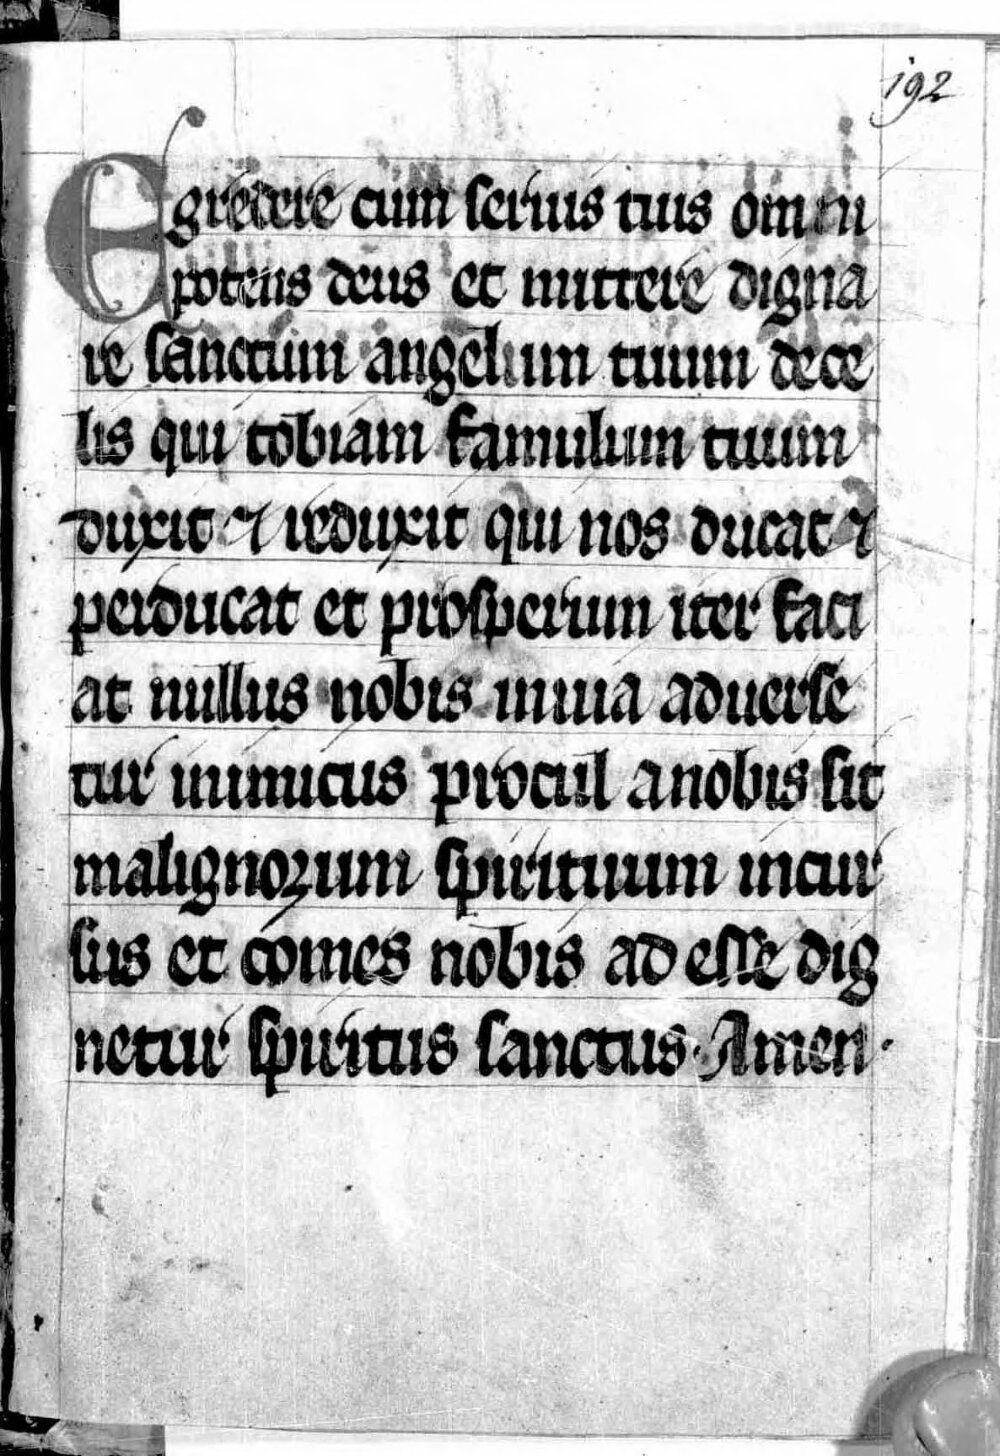 192
Egredere cum seruis tuis omni
potens deus et mittere digna
re sanctum angelum tuum de ce
lis qui tobiam famulum tuum
duxit ⁊ reduxit qui nos ducat ⁊
perducat et prosperum iter faci
at nullus nobis in uia aduerse
tur inimicus procul a nobis sit
malignoꝝum spirituum incur
sus et comes nobis ad esse dig
netur spiritus sanctus · Amen ·